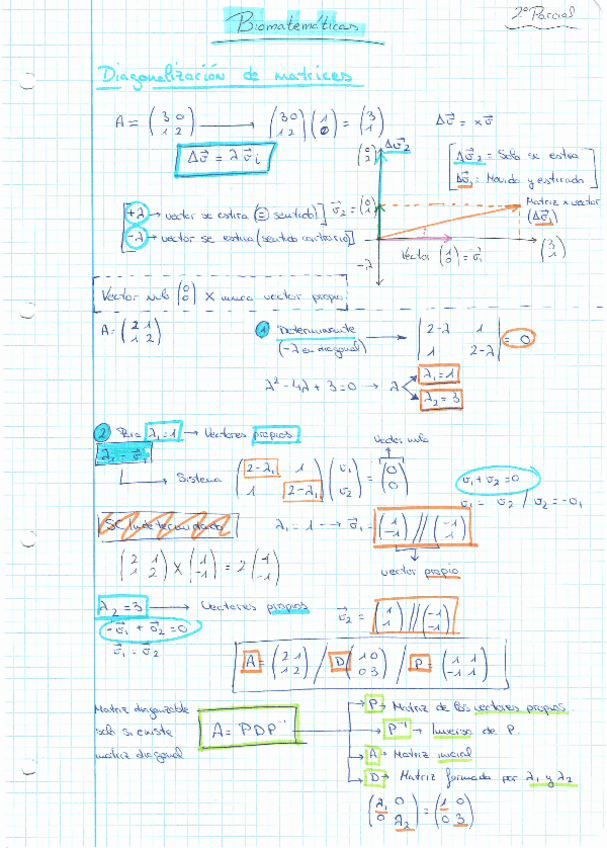 Biomatemáticas
2º Parcial
Diagonalización de matrices
A = (3 0 / 1 2) → (3 0 / 1 2) (1 / 0) = (3 / 1)
Δv⃗ = xv⃗
Δv⃗ = λ v⃗i
(0 / 2) Δv⃗2
[Δv⃗2 = Solo se estira
Δv⃗1 = Movido y estirado]
Matriz x vector
(Δv⃗1)
[+λ → vector se estira (= sentido)
-λ → vector se estira (sentido contrario)]
v⃗2 = (0 / 1)
Vector (1 / 0) = v⃗1
(3 / 1)
-λ
Vector nulo (0 / 0) x nunca vector propio
A = (2 1 / 1 2)
1 Determinante
(-λ en diagonal)
→ |2-λ 1 / 1 2-λ| = 0
λ² - 4λ + 3 = 0 → λ
λ1 = 1
λ2 = 3
2 Para λ1 = 1 → Vectores propios
Vector nulo
Sistema (2-λ1 1 / 1 2-λ1) (v1 / v2) = (0 / 0)
v1 + v2 = 0
v1 = -v2 / v2 = -v1
SC Indeterminado
λ1 = 1 → v⃗1 = (1 / -1) // (-1 / 1)
vector propio
(2 1 / 1 2) x (1 / -1) = 2 (1 / -1)
λ2 = 3 → Vectores propios
v⃗2 = (1 / 1) // (-1 / -1)
-v⃗1 + v⃗2 = 0
v⃗1 = v⃗2
A = (2 1 / 1 2) / D (1 0 / 0 3) / P = (1 1 / -1 1)
Matriz diagonizable
solo si existe
matriz diagonal
A = PDP⁻¹
P → Matriz de los vectores propios
P⁻¹ → Inversa de P.
A → Matriz inicial
D → Matriz formada por λ1 y λ2
(λ1 0 / 0 λ2) = (1 0 / 0 3)